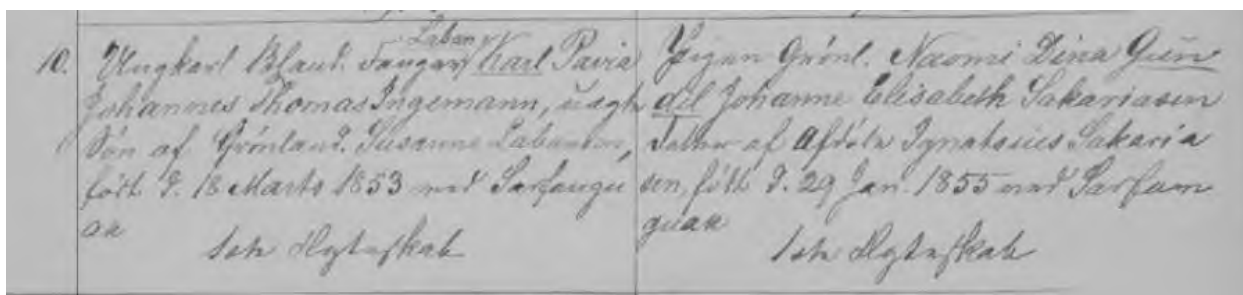 10.
Laban
Ungkarl Bland. Fanger Karl Pavia
Johannes Thomas Ingemann, uægt
Søn af Grønland. Susanne Labansen,
født d. 18 Marts 1853 ved Sarfangu
ak
1ste Ægteskab
Pigen Grønl. Naomi Dina Gun
del Johanne Elisabeth Sakariasen
Datter af Afdøde Ignatsius Sakaria
sen, født d. 29 Jan. 1855 ved Sarfan
guak
1ste Ægteskab